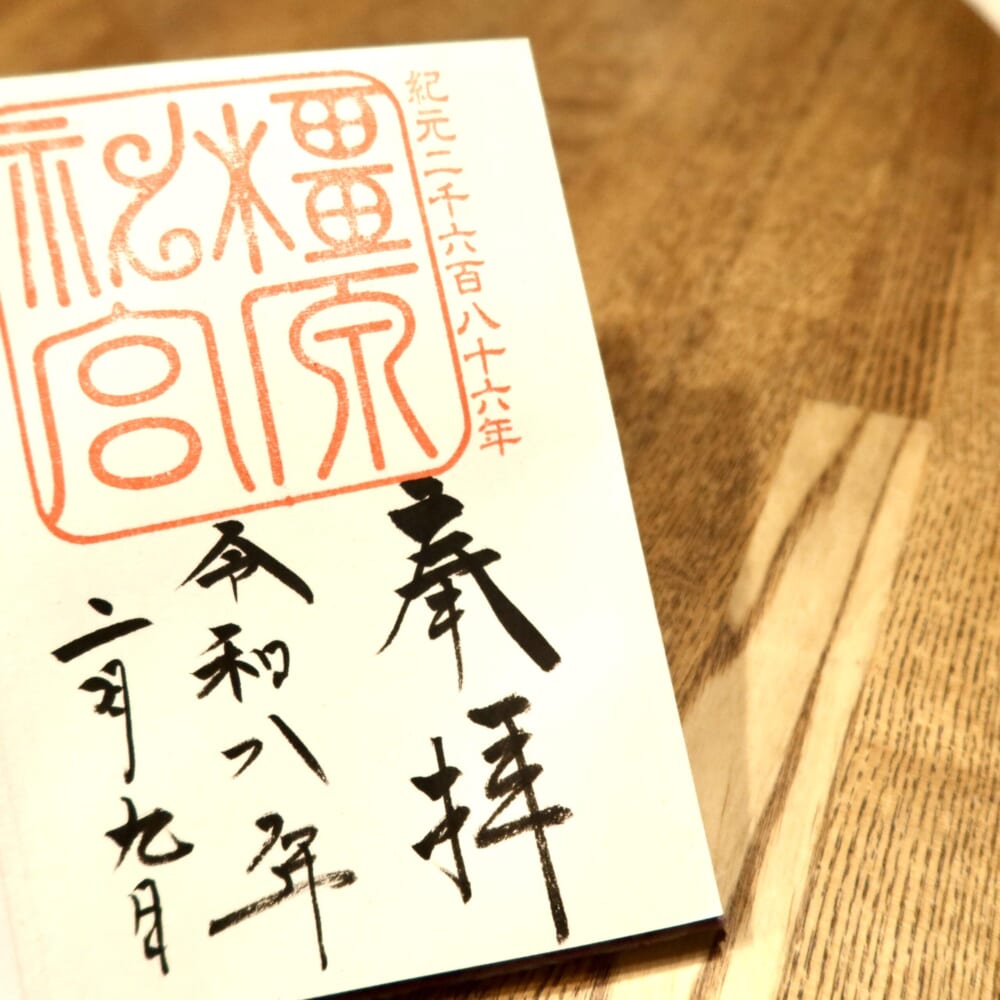 紀元二千六百八十六年
橿原
神宮
奉拝
令和八年
二月九日